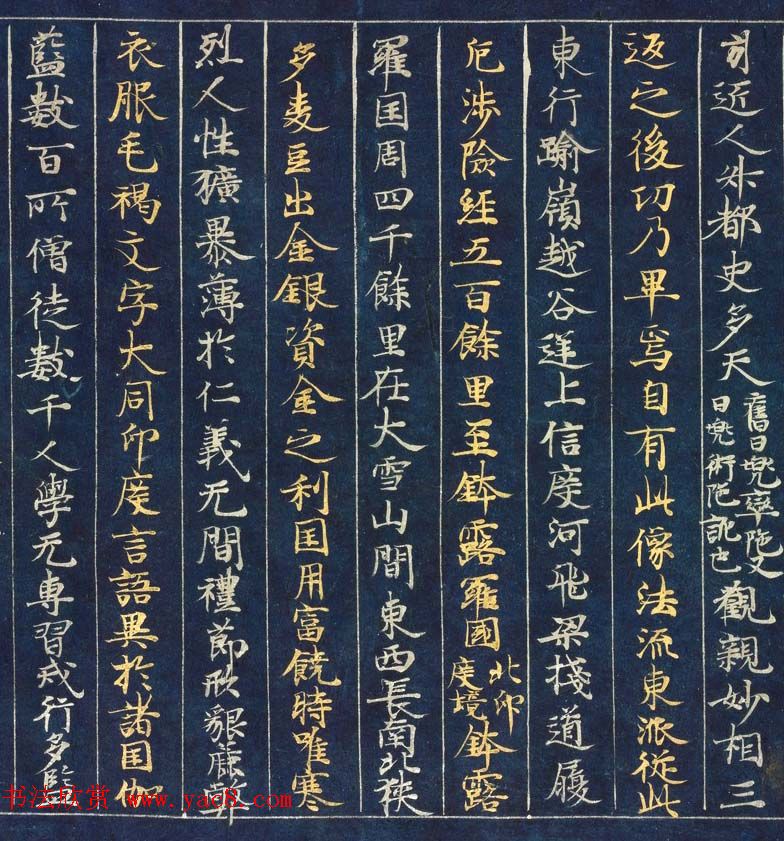 近人升都史多天舊曰兜率陁又曰兜術陁訛也觀親妙相三
返之後功乃畢焉自有此像法流東派從此
東行踰嶺越谷逆上信度河飛梁棧道履
危涉險經五百餘里至鉢露羅國北印度境鉢露
羅囯周四千餘里在大雪山間東西長南北狹
多麦豆出金銀資金之利囯用富饒時唯寒
烈人性獷暴薄於仁義无間禮節形貌麁弊
衣服毛褐文字大同印度言語異於諸囯伽
藍數百所僧徒數千人學无專習戒行多濫
书法欣赏 www.yac8.com